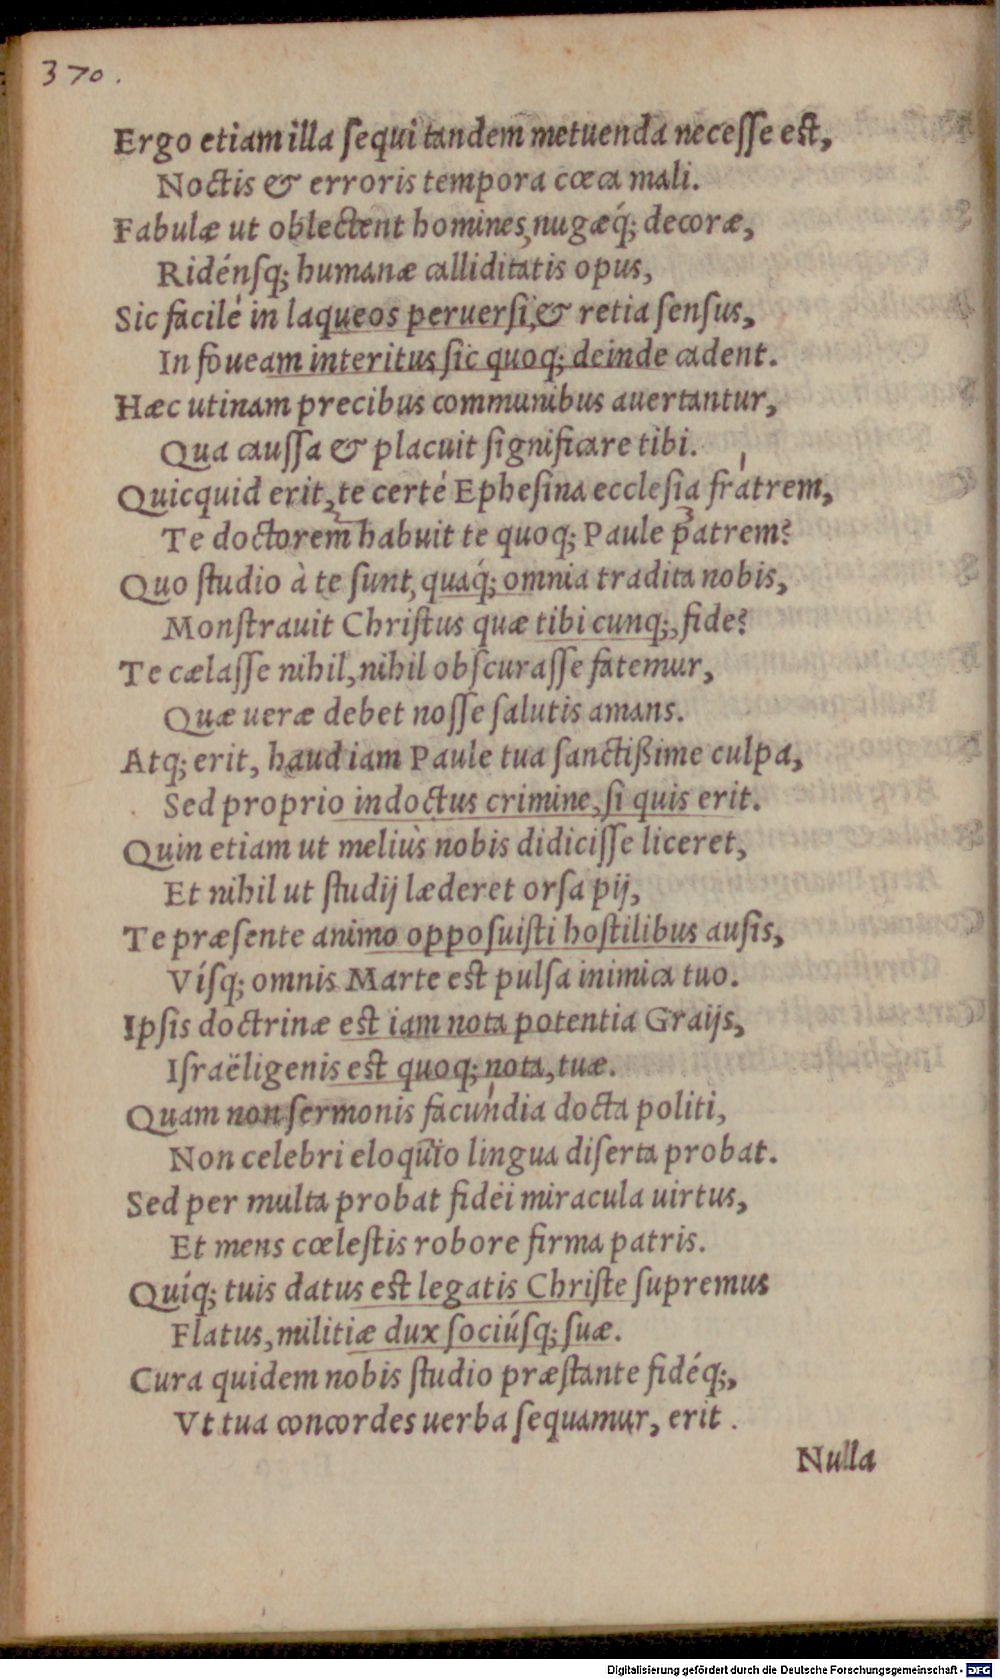 370.
Ergo etiam illa sequi tandem metuenda necesse est,
Noctis & erroris tempora cœca mali.
Fabulæ ut oblectent homines, nugæq́; decoræ,
Ridénsq; humanæ calliditatis opus,
Sic facilè in laqueos peruersi, & retia sensus,
In foueam interitus sic quoq; deinde cadent.
Hæc utinam precibus communibus auertantur,
Qua caussa & placuit significare tibi.
Quicquid erit, te certé Ephesina ecclesia fratrem,
Te doctorem habuit te quoq; Paule patrem?
Quo studio à te sunt, quaq́; omnia tradita nobis,
Monstrauit Christus quæ tibi cunq;, fide?
Te cælasse nihil, nihil obscurasse fatemur,
Quæ ueræ debet nosse salutis amans.
Atq; erit, haud iam Paule tua sanctißime culpa,
Sed proprio indoctus crimine, si quis erit.
Quin etiam ut meliùs nobis didicisse liceret,
Et nihil ut studij læderet orsa pij,
Te præsente animo opposuisti hostilibus ausis,
Vísq; omnis Marte est pulsa inimica tuo.
Ipsis doctrinæ est iam nota potentia Graijs,
Israëligenis est quoq; nota, tuæ.
Quam non sermonis facundia docta politi,
Non celebri eloquio lingua diserta probat.
Sed per multa probat fidëi miracula uirtus,
Et mens cœlestis robore firma patris.
Quíq; tuis datus est legatis Christe supremus
Flatus, militiæ dux sociúsq; suæ.
Cura quidem nobis studio præstante fidéq;,
Vt tua concordes uerba sequamur, erit.
Nulla
Digitalisierung gefördert durch die Deutsche Forschungsgemeinschaft - DFG